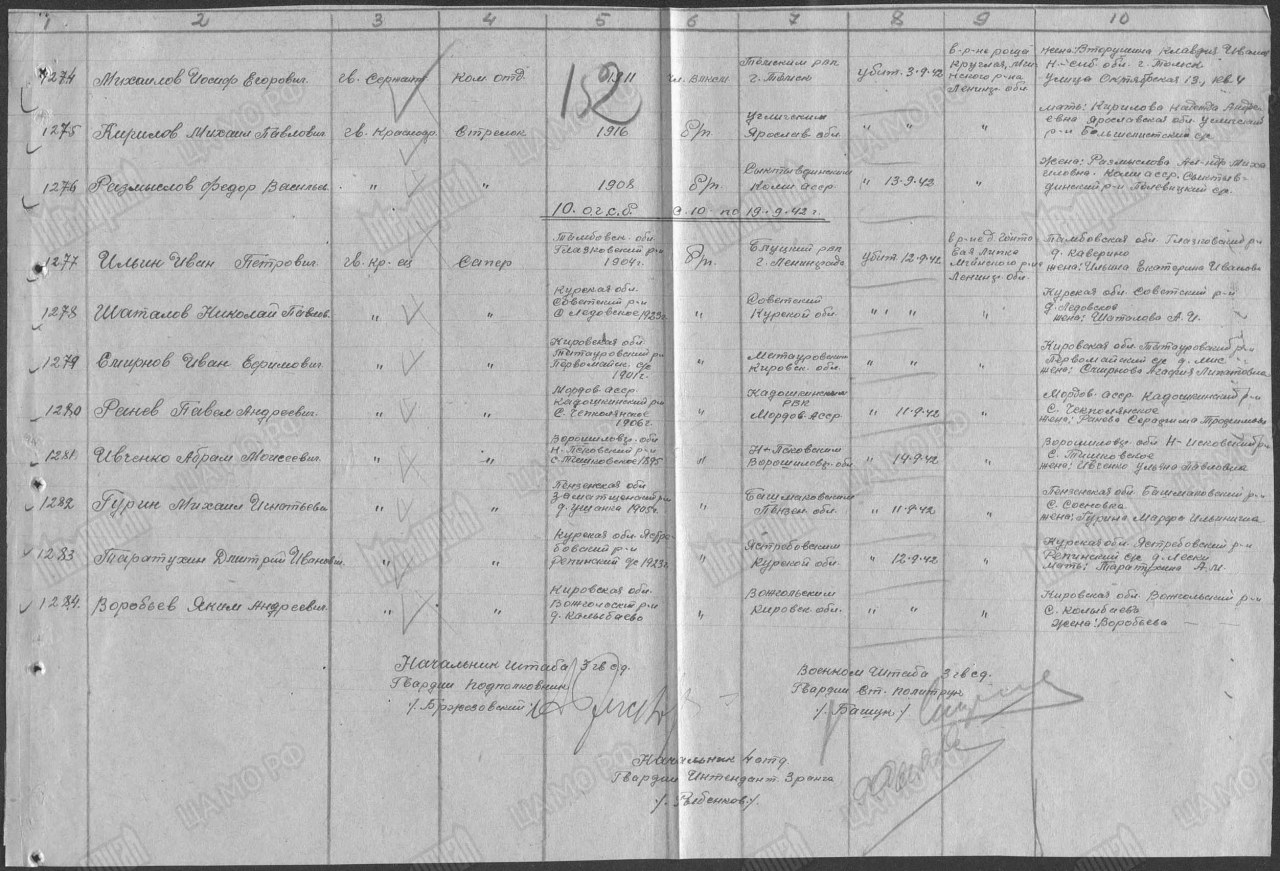 1 2 3 4 5 6 7 8 9 10
1274 Михаилов Иосиф Егорович. гв. Сержант Ком. отд. 1911 чл. ВЛКСМ Томским рвк г. Томск убит 3-9-42 в р-не рощи Круглая, Мгинского р-на Ленингр. обл. жена: Вторушина Клавдия Иванов Н-Сиб. обл. г. Томск улица Октябрская 13, кв 4
152
1275 Кирилов Михаил Павлович гв. Красноар. Стрелок 1916 б/п. Угличским Ярослав. обл. " " " мать: Кирилова Надежда Андреевна Ярославская обл. Угличский р-н
1276 Размыслов Федор Василье. " " 1908 б/п. Сыктывдинским Коми АССР " 13-9-42 " жена: Размыслова Коми АССР. Сыктывдинский р-н
10. о.г.с.б. с. 10. по 19.9.42 г.
1277 Ильин Иван Петрович. гв. кр-ец Сапер Тамбовск. обл. Глазковский р-н 1904 г. б/п. г. Ленинграда убит 12-9-42 в р-не д. Гонтовая Липка Мгинского р-на Ленингр. обл. Тамбовская обл. Глазковский р-н д. Каверино жена: Ильина Екатерина Иванов
1278 Шаталов Николай Павлов. " " Курская обл. Советский р-н С. Ледовское 1923 г. " Советский Курской обл. " " " " Курская обл. Советский р-н д. Ледовское жена: Шаталова А. И.
1279 Смирнов Иван Ефимович " " Кировская обл. Татауровский р-н Первомайск. с/с 1901 г. " Татауровским Кировск. обл. " " " Кировская обл. Татауровский р-н Первомайский с/с д. жена: Смирнова Агафия
1280 Ранев Павел Андреевич. " " Мордов. асср. Кадошкинский р-н С. 1906 г. " Кадошкинским РВК Мордов. Асср " 11-9-42 " Мордов. асср Кадошкинский р-н С. жена: Ранова Серафима
1281 Ивченко Абрам Моисеевич. " " Ворошиловг. обл Н. Псковский р-н с. 1895 " Н-Псковским Ворошиловг. обл. " 14-9-42 " Ворошиловг. обл Н-Псковский р-н С. жена: Ивченко Ульяна Павловна
1282 Гурин Михаил Игнатьевич " " Пензенская обл д. Ушанка 1905 г. " Башмаковским Пензен. обл. " 11-9-42 " Пензенская обл. Башмаковский р-н С. Сосновка жена: Гурина Марфа Ильинична
1283 Таратухин Дмитрий Иванович. " " Курская обл. Ястребовский р-н Репинский с/с 1923 г. " Ястребовским Курской обл. " 12-9-42 " Курская обл. Ястребовский р-н Репинский с/с д. Лески мать: Таратухина А. И.
1284. Воробьев Яким Андреевич. " " Кировская обл. Вожгальский р-н д. Калыбаево " Вожгольским Кировск. обл. " " " Кировская обл. Вожгольский р-н С. Колыбаева жена: Воробьева — —
Начальник штаба 3 гв сд.
Гвардии подполковник
/. Бржозовский /.
Военком Штаба 3 гв сд.
Гвардии ст. политрук
/. Башук. /
Начальник 4 отд
Гвардии Интендант 3 ранга
/. Рыбенков /.